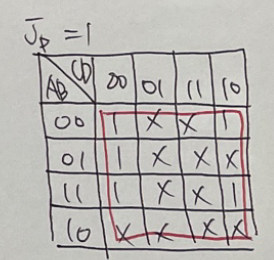 J_D = 1
AB CD 00 01 11 10
00 1 X X 1
01 1 X X X
11 1 X X 1
10 X X X X